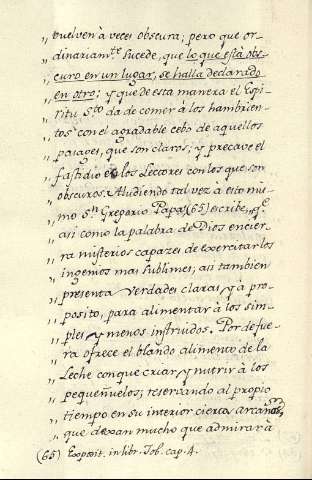 „ vuelven à veces obscura; pero que or-
„ dinariam.te sucede, que lo que està obs-
„ curo en un lugar, se halla declarado
„ en otro; y que de esta manera el Espi-
„ ritu S.to da de comer à los hambrien-
„ tos con el agradable cebo de aquellos
„ pasages, que son claros; y precave el
„ fastidio de los Lectores con los que son
„ obscuros. Aludiendo tal vez à esto mis-
„ mo S.n Gregorio Papa (65) escribe, q.e
„ asi como la palabra de Dios encier-
„ ra misterios capazes de exercitar los
„ ingenios mas sublimes, asi tambien
„ presenta verdades claras y à pro-
„ posito, para alimentar à los sim-
„ ples y menos instruidos. Por defue-
„ ra ofrece el blando alimento de la
„ Leche con que criar y nutrir à los
„ pequeñuelos; reservando al propio
„ tiempo en su interior ciertos arcanos,
„ que dexan mucho que admirar à
(65) Exposit. in libr. Job. cap. 4.